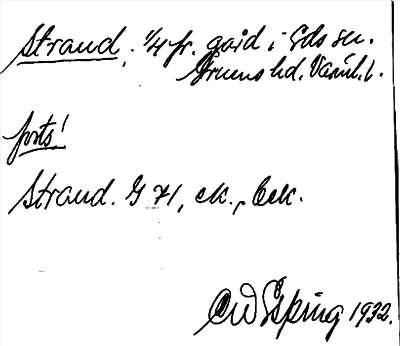 Strand. 1/4 fr. gård i Eds sn.
Grums hd. Värml. l.
forts!
Strand. G 71, ek., bek.
CW Spring 1932.